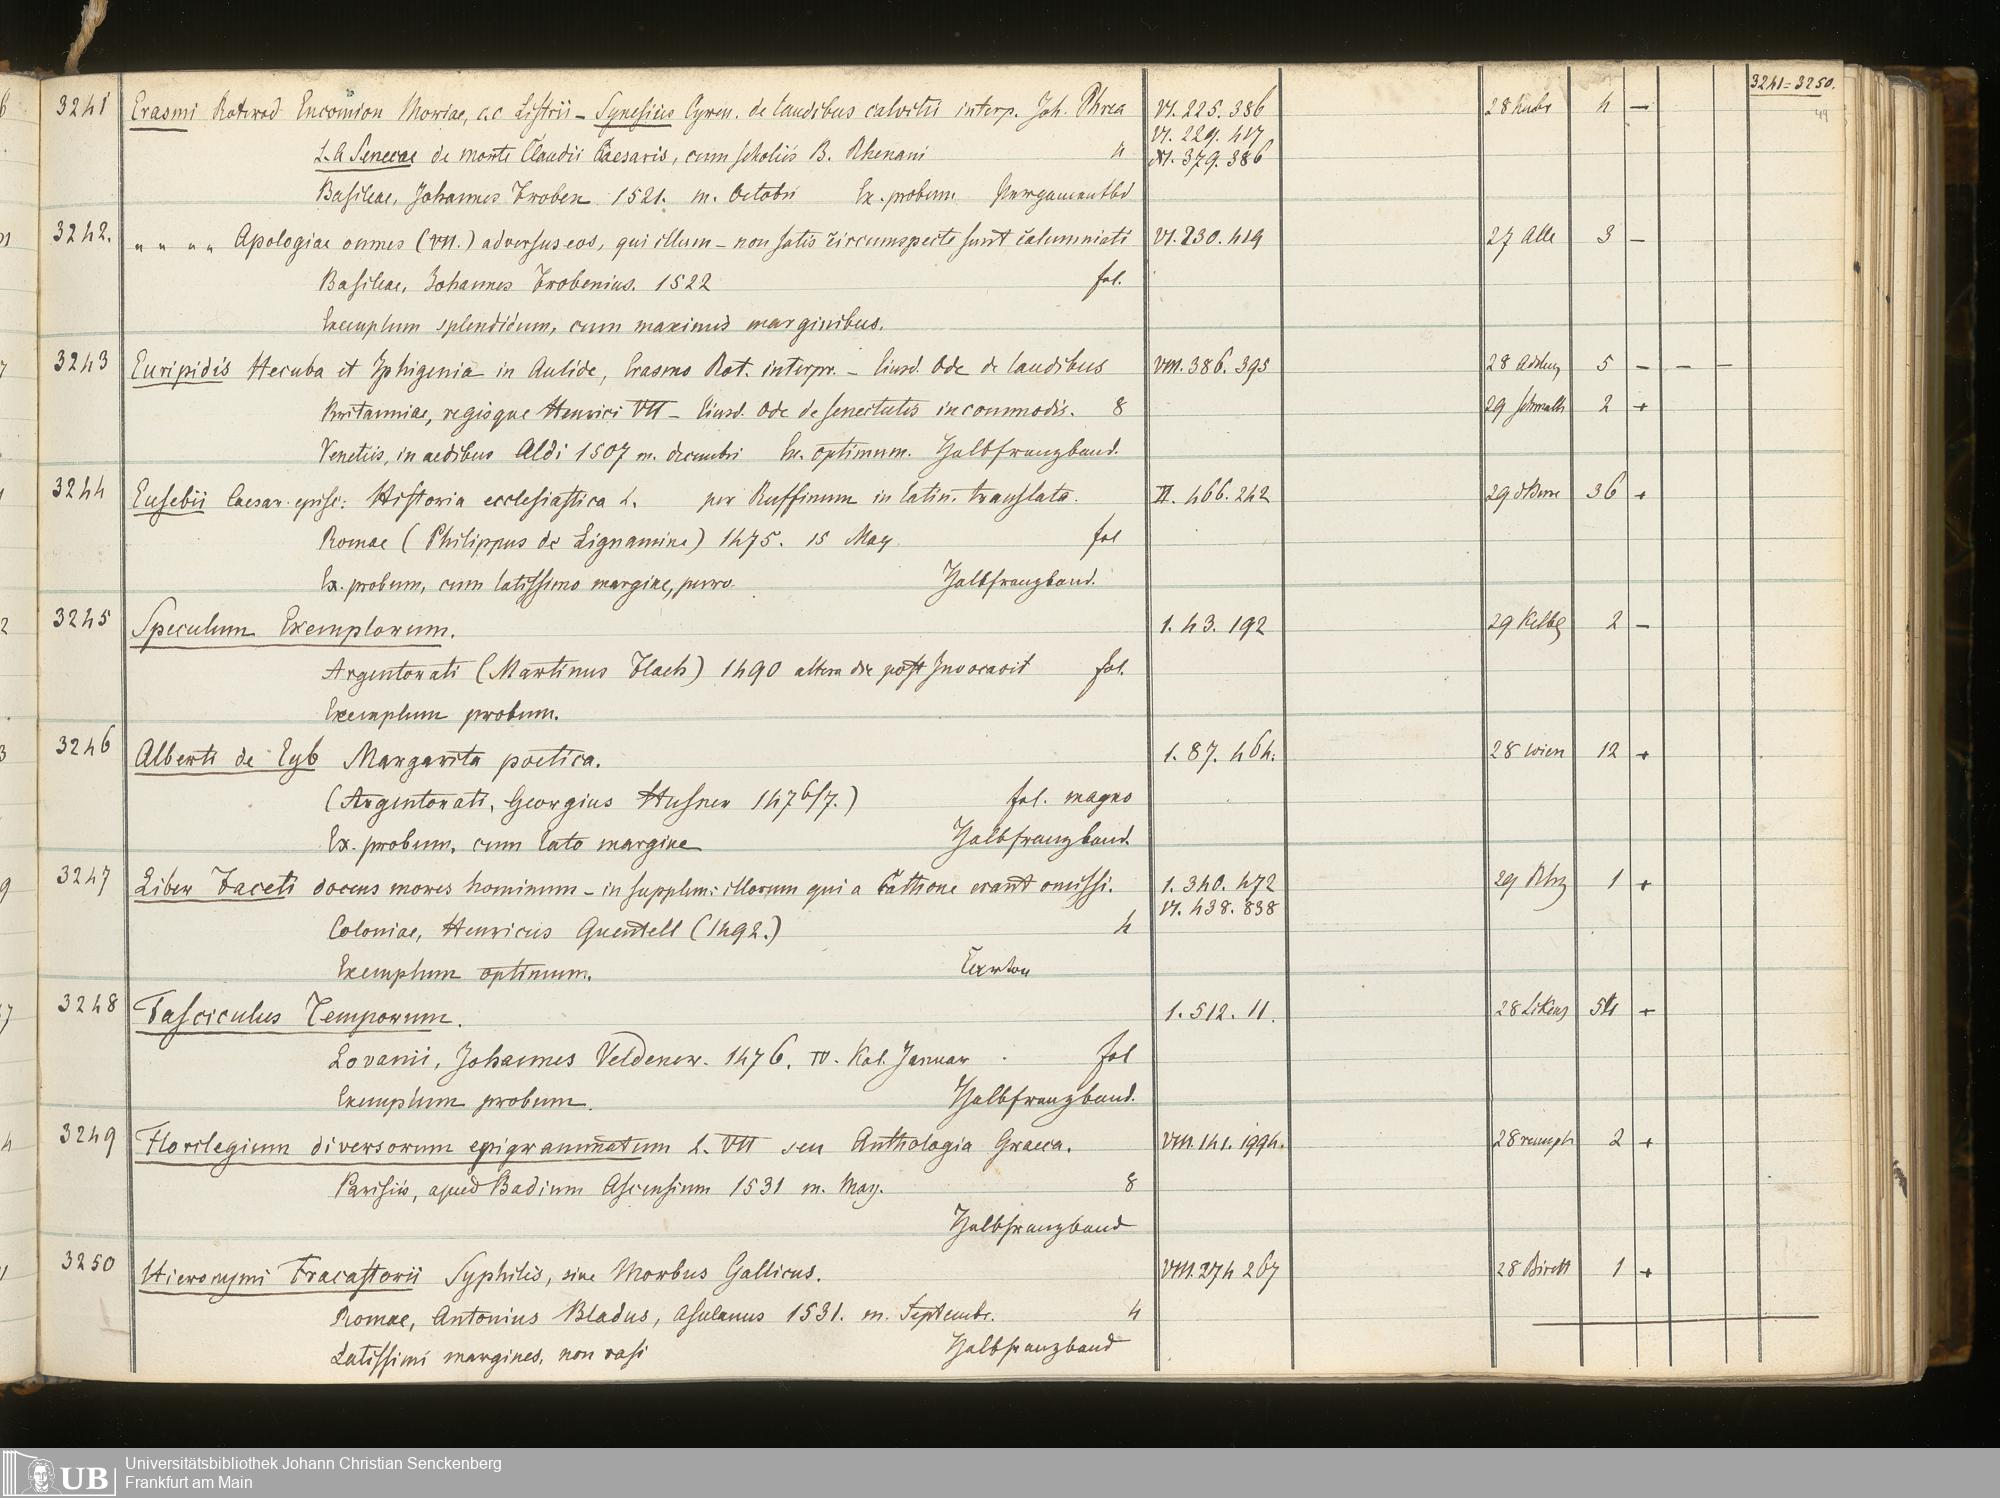 3241=3250.
49
3241 Erasmi Roterod Encomion Moriae, c.c Listrii – Synesius Cyren. de laudibus calvitii interp. Joh. Phrea VI. 225. 386 28 4 –
VI. 229. 417
L. A Senecae de morte Claudii Caesaris, cum scholiis B. Rhenani 4 VI. 379. 386
Basileae, Johannes Froben 1521. m. Octobri Ex. probum Pergamentbd
3242. " " " " Apologiae omnes (VII.) adversus eos, qui illum – non satis circumspecte sunt calumniati VI. 230. 419 27 Alle 3 –
Basileae, Johannes Frobenius. 1522 fol.
Exemplum splendidum, cum maximis marginibus.
3243 Euripidis Hecuba et Iphigenia in Aulide, Erasmo Rot. interpr. – Eiusd. Ode de laudibus VIII. 386. 395 28 5 – – –
Britanniae, regisque Henrici VII – Eiusd. Ode de senectutis incommodis. 8 29 2 +
Venetiis, in aedibus Aldi 1507 m. decembri Ex. optimum. Halbfranzband.
3244 Eusebii Caesar. episc: Historia ecclesiastica L. per Ruffinum in latin. translata. II. 466. 242 29 36 +
Romae (Philippus de Lignamine) 1475. 15 May fol
Ex. probum, cum latissimo margine, puro. Halbfranzband.
3245 Speculum Exemplorum. 1. 43. 192 29 2 –
Argentorati (Martinus Flach) 1490 altera die post Invocavit fol.
Exemplum probum.
3246 Alberti de Eyb Margarita poetica. 1. 87. 464. 28 wien 12 +
(Argentorati, Georgius Husner 1476/7.) fol. magno
Ex. probum, cum lato margine Halbfranzband
3247 Liber Faceti docens mores hominum – in supplem: illorum qui a Cathone erant omissi. 1. 340. 472 29 1 +
VI. 438. 838
Coloniae, Henricus Quentell (1492.) 4
Exemplum optimum. Carton
3248 Fasciculus Temporum. 1. 512. 11. 28 +
Lovanii, Johannes Veldener. 1476. IV. Kal. Januar fol
Exemplum probum. Halbfranzband.
3249 Florilegium diversorum epigrammatum L. VII seu Anthologia Graeca. VIII. 141. 1994. 28 2 +
Parisiis, apud Badium Ascensium 1531 m. May. 8
Halbfranzband
3250 Hieronymi Fracastorii Syphilis, sive Morbus Gallicus. VIII. 274 267 28 1 +
Romae, Antonius Bladus, Asulanus 1531. m. Septembr. 4
Latissimi margines, non rasi Halbfranzband
UB
Universitätsbibliothek Johann Christian Senckenberg
Frankfurt am Main